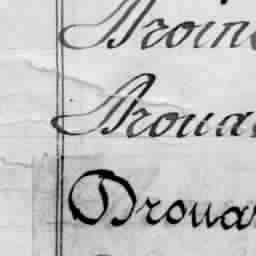 Droin
Droua
Drouar